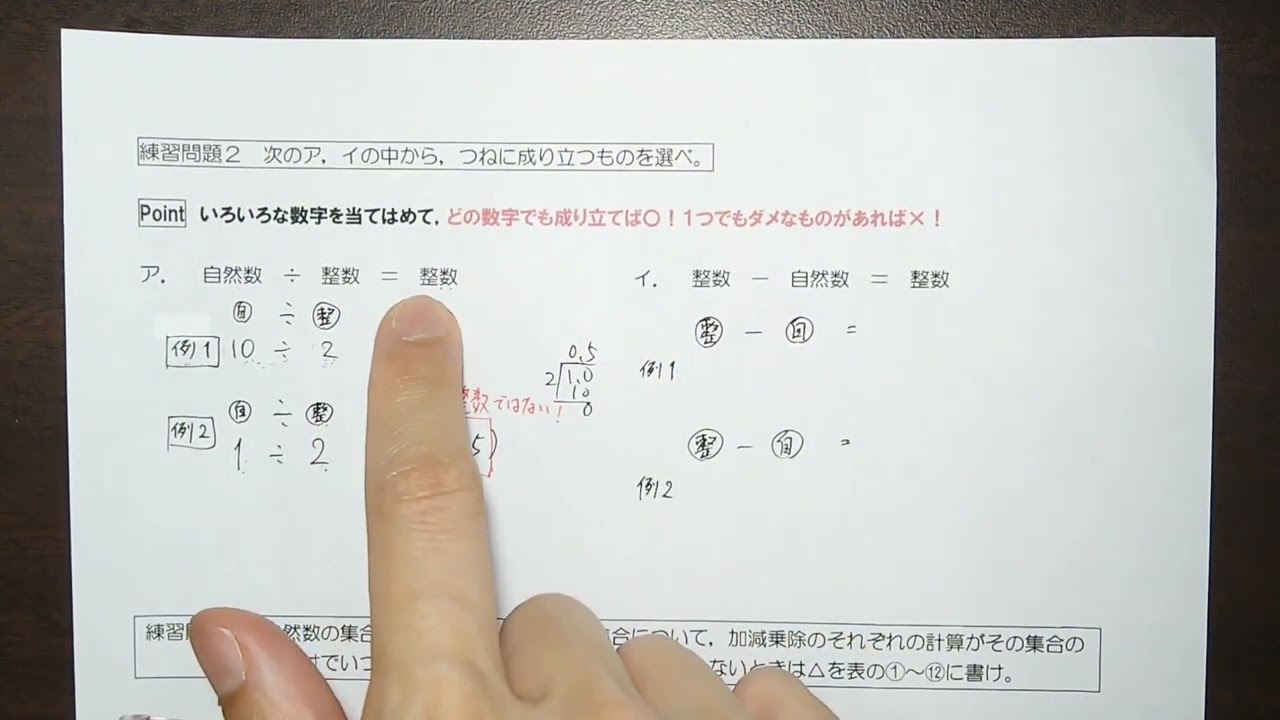 練習問題２ 次のア，イの中から，つねに成り立つものを選べ。
Point いろいろな数字を当てはめて，どの数字でも成り立てば〇！１つでもダメなものがあれば×！
ア． 自然数 ÷ 整数 ＝ 整数
自 ÷ 整
例1 10 ÷ 2
例2 自 ÷ 整
1 ÷ 2
整数ではない！
5)
0.5
2 1.0
10
0
イ． 整数 － 自然数 ＝ 整数
整 － 自 ＝
例1
整 － 自 ＝
例2
練習 然数の集合 合について，加減乗除のそれぞれの計算がその集合の
でいつ ないときは△を表の①～⑫に書け。